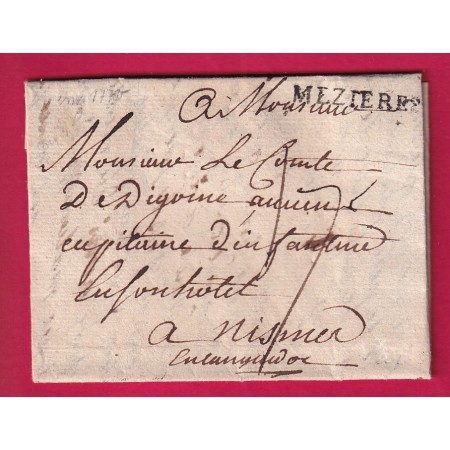 MEZIERES
A Monsieur
Monsieur Le Comte
De Digoine ancien
capitaine d'infanterie
En son hôtel
a Nismes
En Languedoc